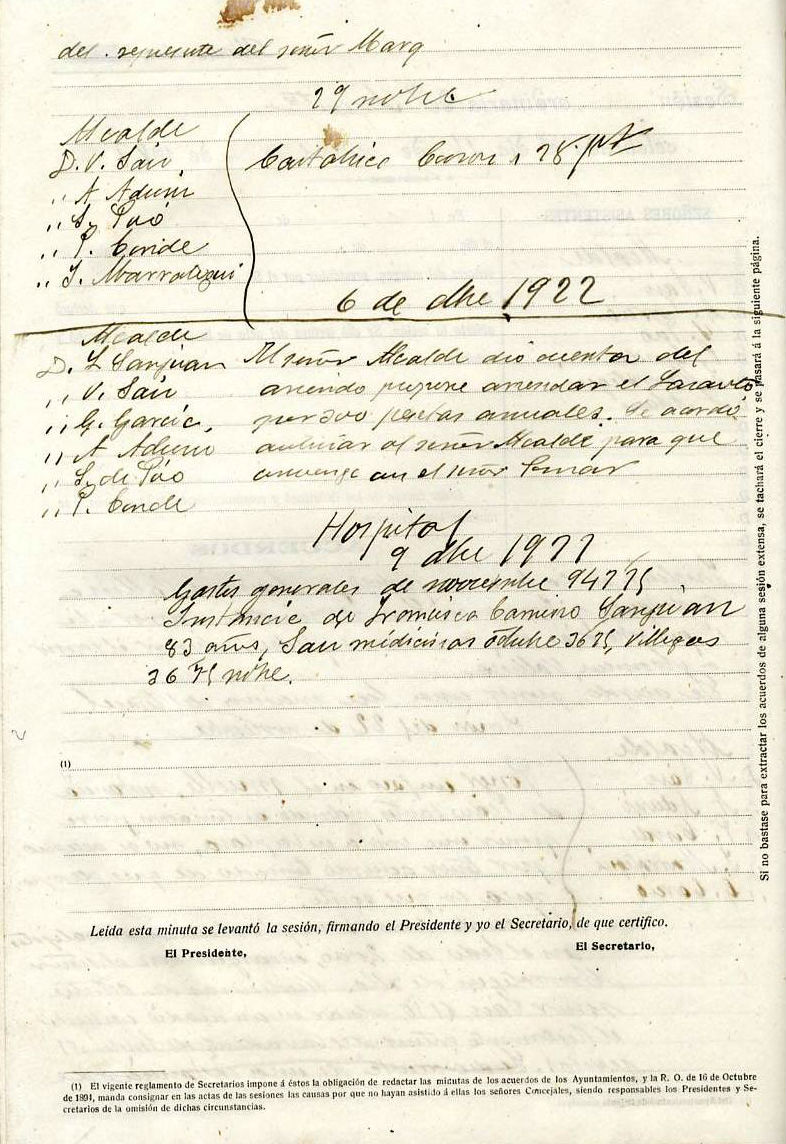 del . del señor Marq
29 nobre
Alcalde
D. V. Sáiz
,, A Aduni
,, S. Páo
,, P. Conde
,, Y. Marralegui
28 pts
6 de dbre 1922
Alcalde
D. Y Sanjuan
,, V. Sáiz
,, G. García,
,, A Aduni
,, S. de Páo
,, P. Conde
El señor Alcalde dio cuenta del
arriendo propone arrendar el
por 300 pesetas anuales. Se acordó
autorizar al señor Alcalde para que
convenga con el señor
Hospital
9 dbre 1922
Gastos generales de noviembre 942 75
Instancia de Francisca Camino Sanjuan
83 años, San medicinas octubre 36 75, Villegas
36 75 nobre.
(1)
Leida esta minuta se levantó la sesión, firmando el Presidente y yo el Secretario, de que certifico.
El Presidente,
El Secretario,
(1) El vigente reglamento de Secretarios impone á éstos la obligación de redactar las minutas de los acuerdos de los Ayuntamientos, y la R. O. de 16 de Octubre
de 1891, manda consignar en las actas de las sesiones las causas por que no hayan asistido á ellas los señores Concejales, siendo responsables los Presidentes y Se-
cretarios de la omisión de dichas circunstancias.
Si no bastase para extractar los acuerdos de alguna sesión extensa, se tachará el cierre y se pasará á la siguiente página.